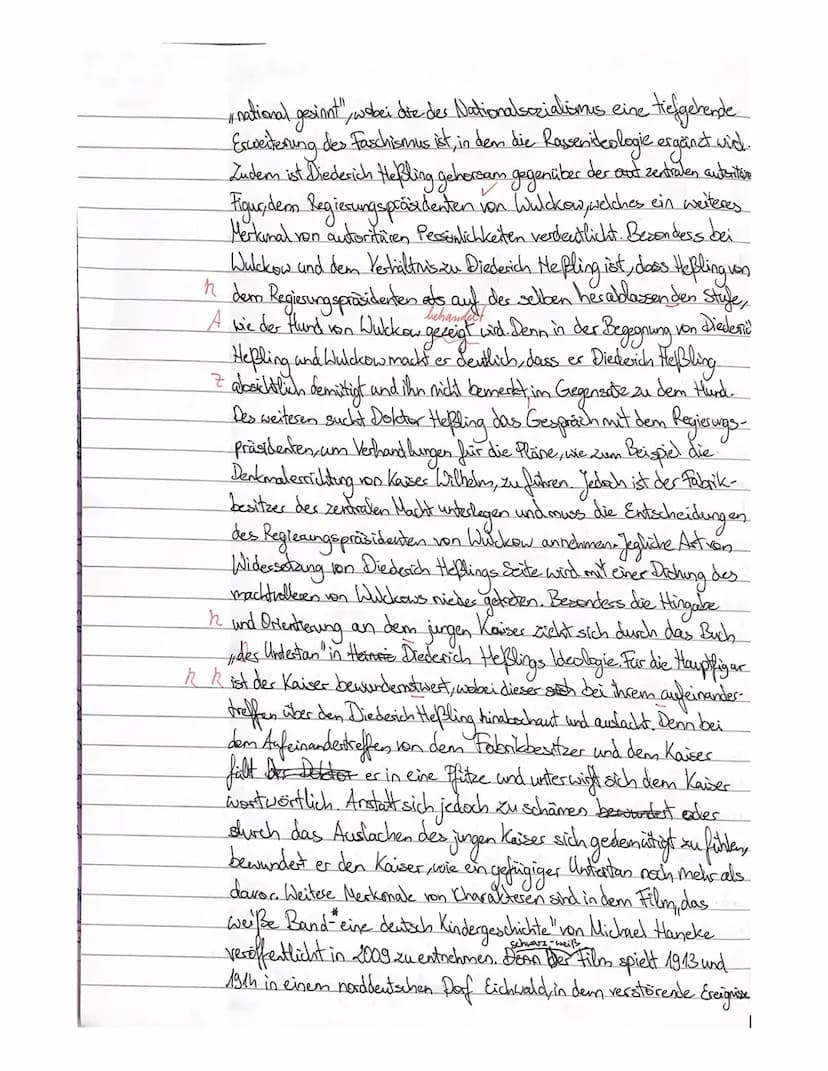 „national gesinnt", wobei die des Nationalsozialismus eine tiefgehende
Erweiterung des Faschismus ist, in dem die Rassenideologie ergänzt wird.
Zudem ist Diederich Heßling gehorsam gegenüber der zentralen autoritären
Figur, dem Regierungspräsidenten von Wulckow, welches ein weiteres
Merkmal von autoritären Persönlichkeiten verdeutlicht. Besonders bei
Wulckow und dem Verhältnis zu Diederich Heßling ist, dass Heßling von
h dem Regierungspräsidenten als auf der selben herablassenden Stufe,
behandelt
A wie der Hund von Wulckow gezeigt wird. Denn in der Begegnung von Diederich
Heßling und Wulckow macht er deutlich, dass er Diederich Heßling
Z absichtlich demütigt und ihn nicht bemerkt, im Gegensatz zu dem Hund.
Des weiteren sucht Doktor Heßling das Gespräch mit dem Regierungs-
präsidenten, um Verhandlungen für die Pläne, wie zum Beispiel die
Denkmalerrichtung von Kaiser Wilhelm, zu führen. Jedoch ist der Fabrik-
besitzer der zentralen Macht unterlegen und muss die Entscheidungen
des Regierungspräsidenten von Wulckow annehmen. Jegliche Art von
Widersetzung von Diederich Heßlings Seite wird mit einer Drohung des
machtvolleren von Wulckows nieder getreten. Besonders die Hingabe
h und Orientierung an dem jungen Kaiser zieht sich durch das Buch
„der Untertan" in Diederich Heßlings Ideologie. Für die Hauptfigur
h h ist der Kaiser bewundernstwert, wobei dieser bei ihrem aufeinander-
treffen über den Diederich Heßling hinabschaut und auslacht. Denn bei
dem Aufeinandertreffen von dem Fabrikbesitzer und dem Kaiser
fällt Der Doktor er in eine Pfütze und unterwirft sich dem Kaiser
wortwörtlich. Anstatt sich jedoch zu schämen bewundert oder
durch das Auslachen des jungen Kaiser sich gedemütigt zu fühlen,
bewundert er den Kaiser, wie ein gefügiger Untertan noch mehr als
davor. Weitere Merkmale von Charakteren sind in dem Film „das
weiße Band-* eine deutsch Kindergeschichte" von Michael Haneke
veröffentlicht in 2009 zu entnehmen. Denn Der schwarz-weiß Film spielt 1913 und
1914 in einem norddeutschen Dorf Eichwald, in dem verstörende Ereignisse